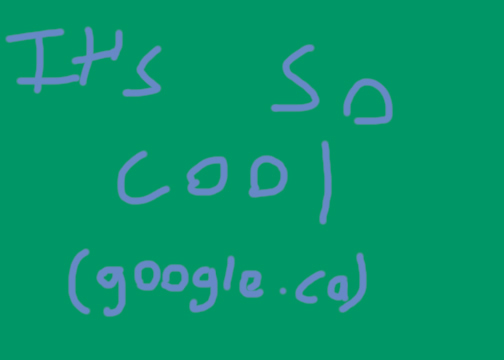 It's so
cool
(google.ca)